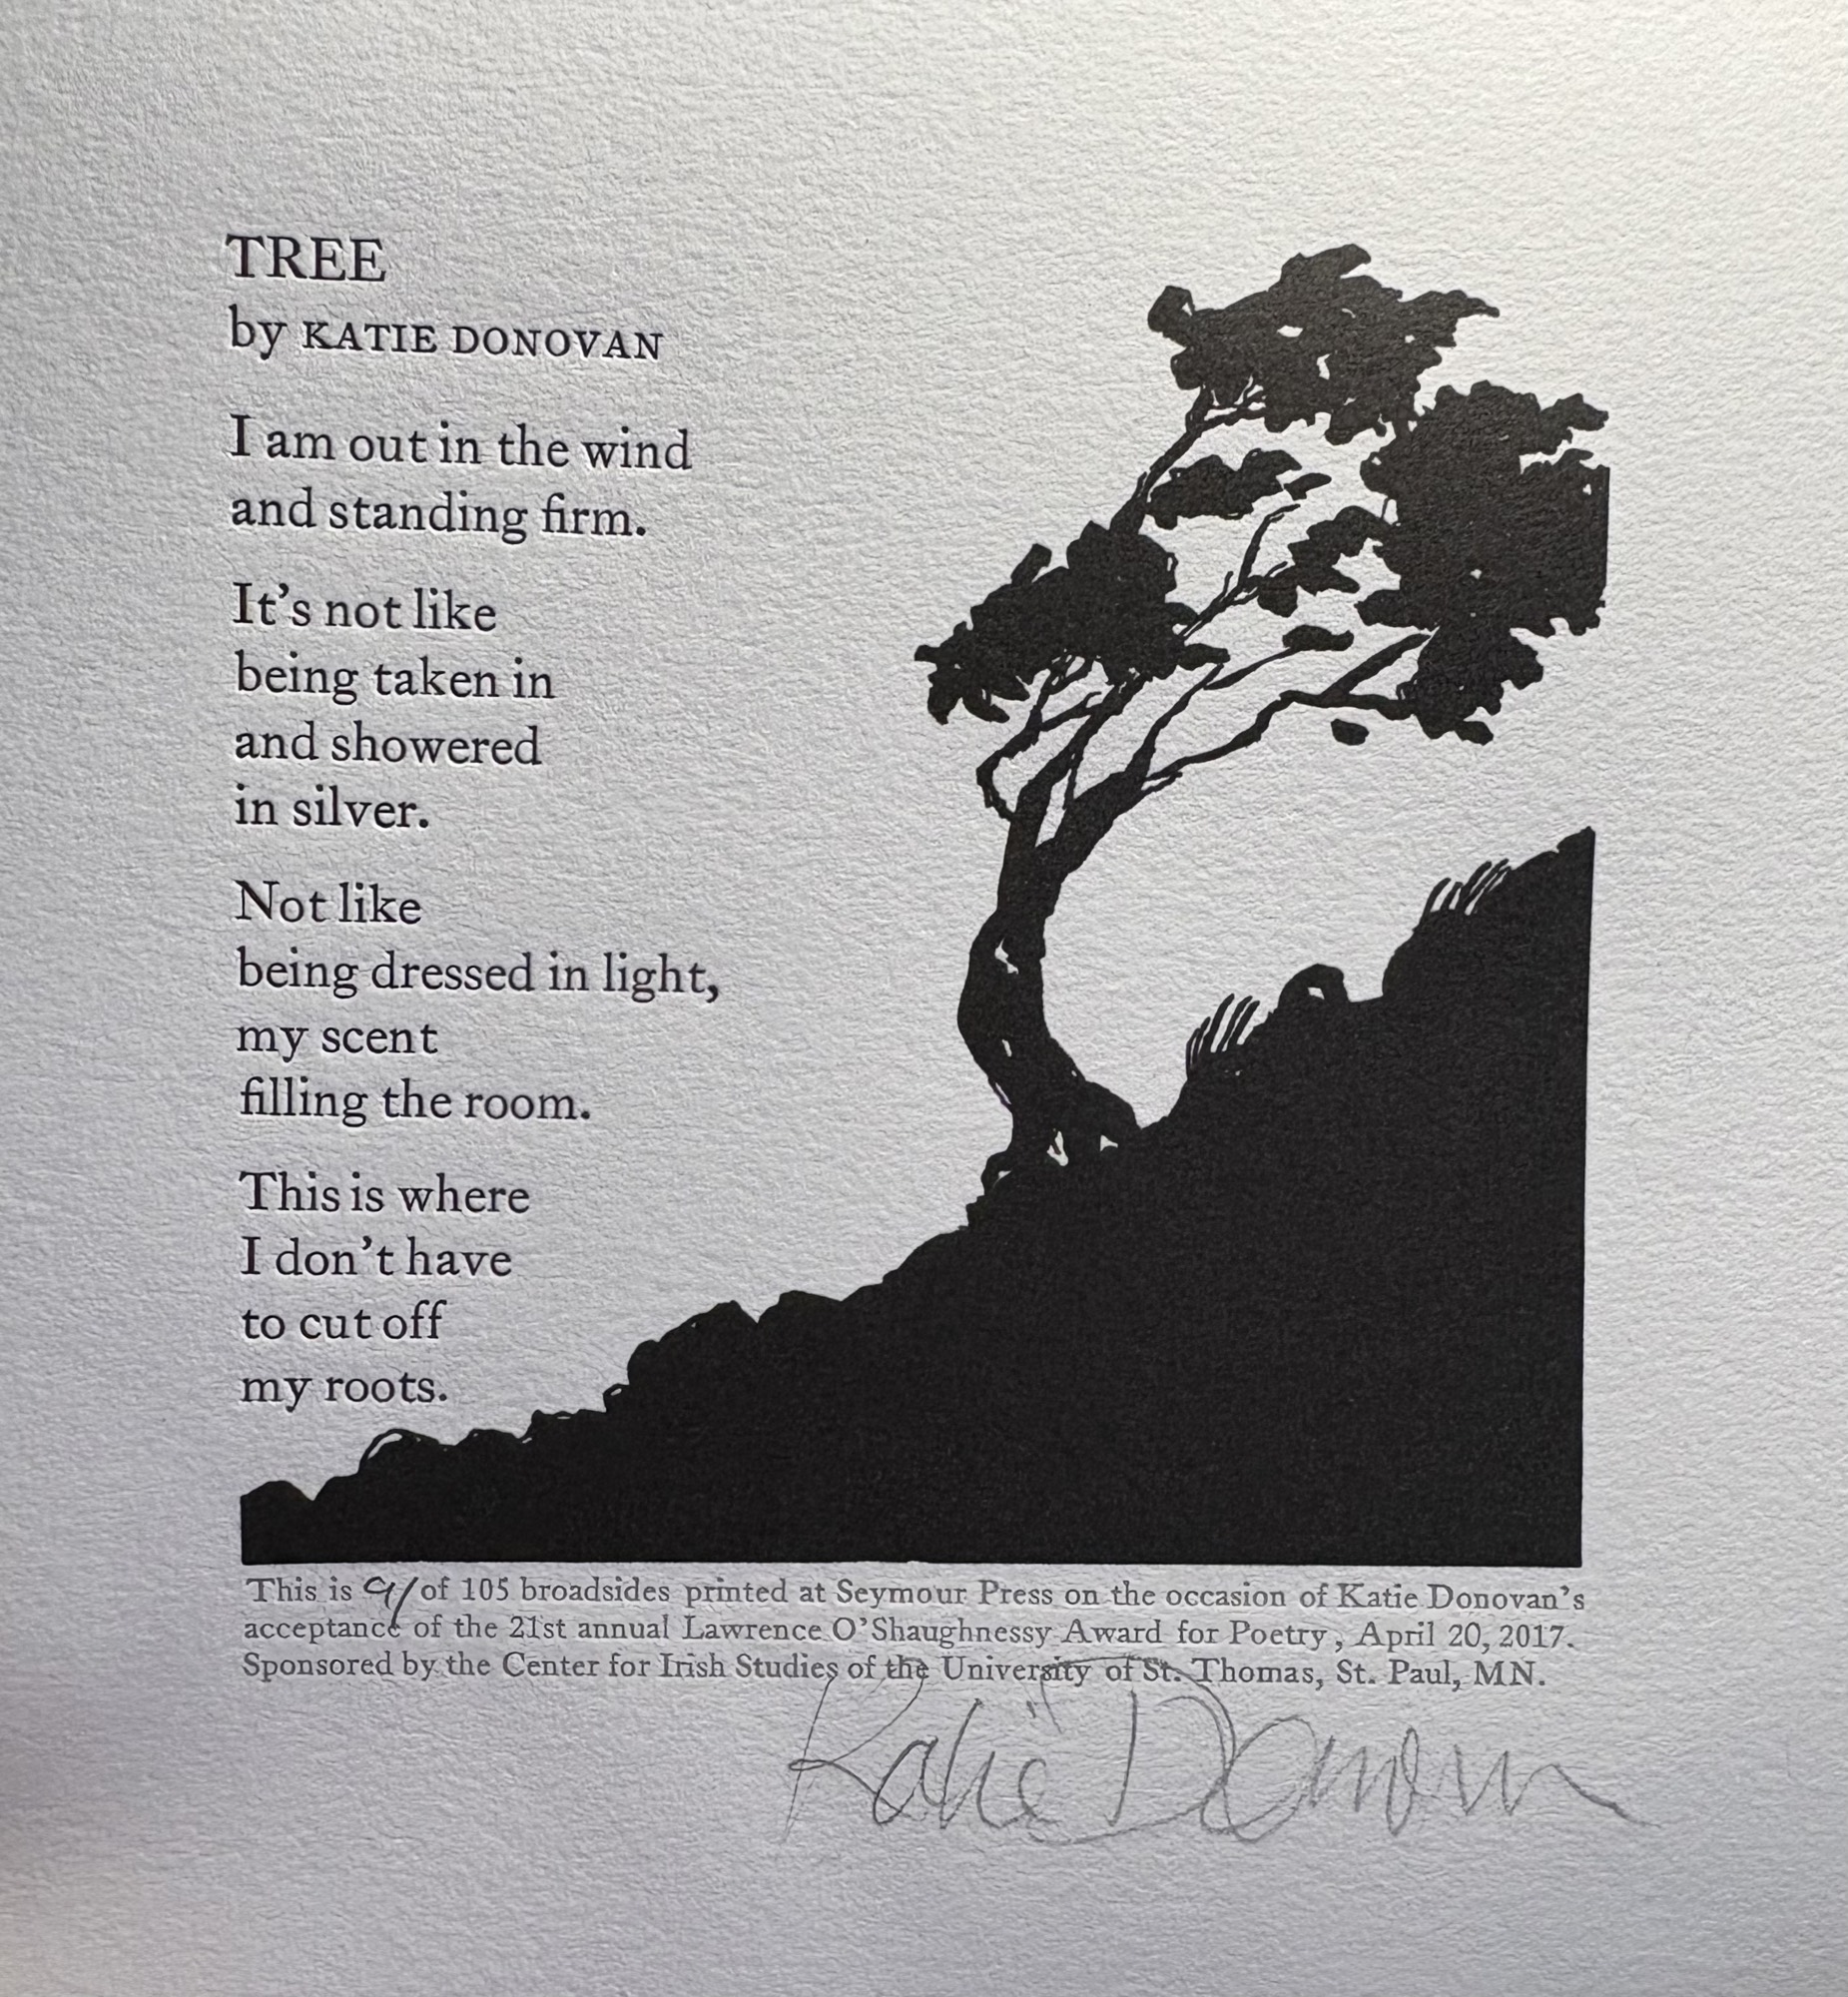 TREE
by KATIE DONOVAN
I am out in the wind
and standing firm.
It's not like
being taken in
and showered
in silver.
Not like
being dressed in light,
my scent
filling the room.
This is where
I don't have
to cut off
my roots.
This is of 105 broadsides printed at Seymour Press on the occasion of Katie Donovan's
acceptance of the 21st annual Lawrence O'Shaughnessy Award for Poetry, April 20, 2017.
Sponsored by the Center for Irish Studies of the University of St. Thomas, St. Paul, MN.
Katie Donovan